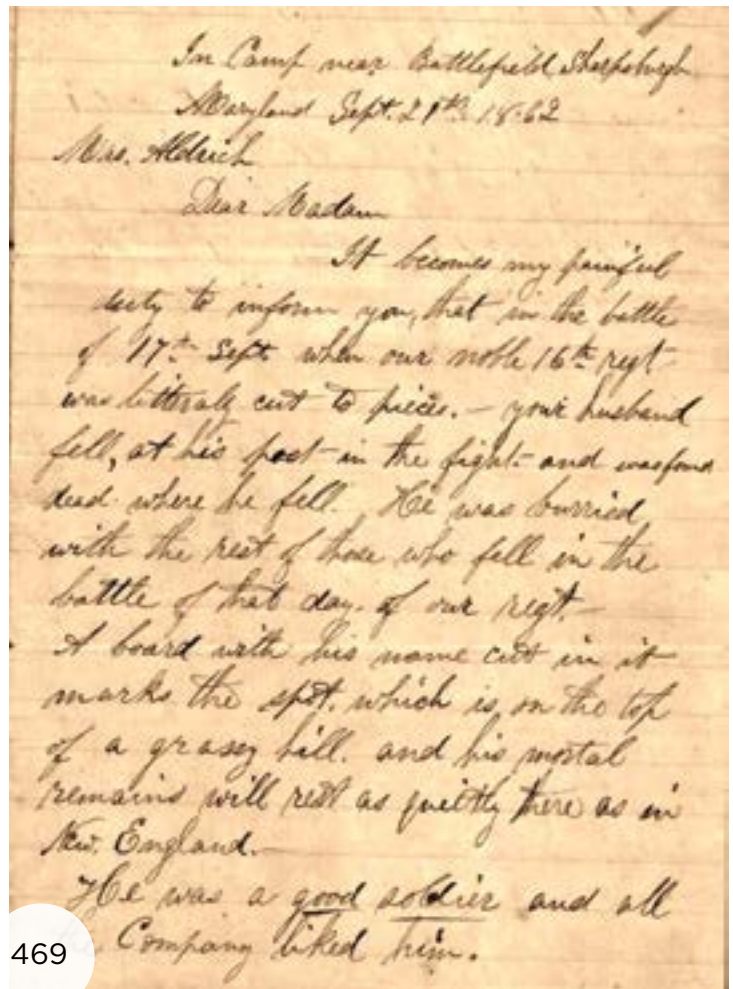 In Camp near Battlefield Sharpsburgh
Maryland Sept. 21th 1862
Mrs. Aldrich
Dear Madam
It becomes my painful
duty to inform you, that in the battle
of 17th Sept. when our noble 16th regt
was litteraly cut to pieces. — your husband
fell, at his post in the fight and was found
dead where he fell. He was burried
with the rest of those who fell in the
battle of that day. of our regt.—
A board with his name cut in it
marks the spot. which is on the top
of a grassy hill. and his mortal
remains will rest as quietly there as in
New. England.—
He was a good soldier and all
the Company liked him.
469